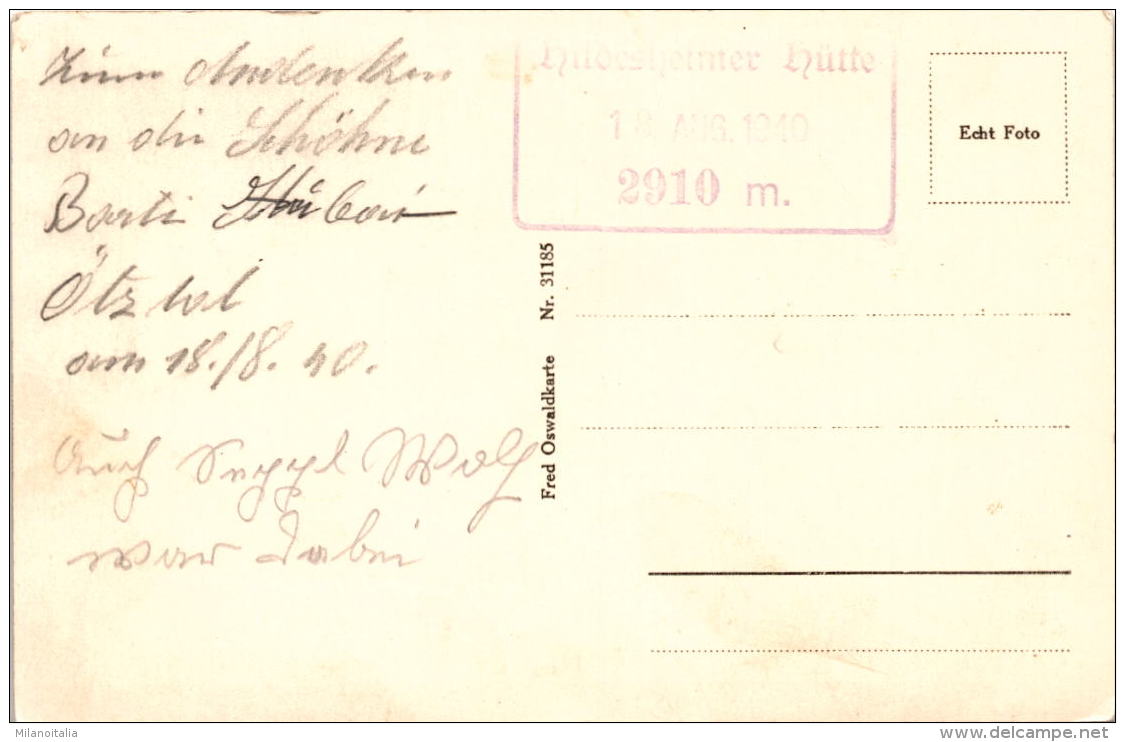 Zum Andenken
an die Schöhne
Barti Stubai
Ötztal
am 18./8. 40.
Auch Seppl Wolf
war dabei
Hildesheimer Hütte
18. AUG. 1940
2910 m.
Echt Foto
Fred Oswaldkarte Nr. 31185
Milanoitalia
www.delcampe.net